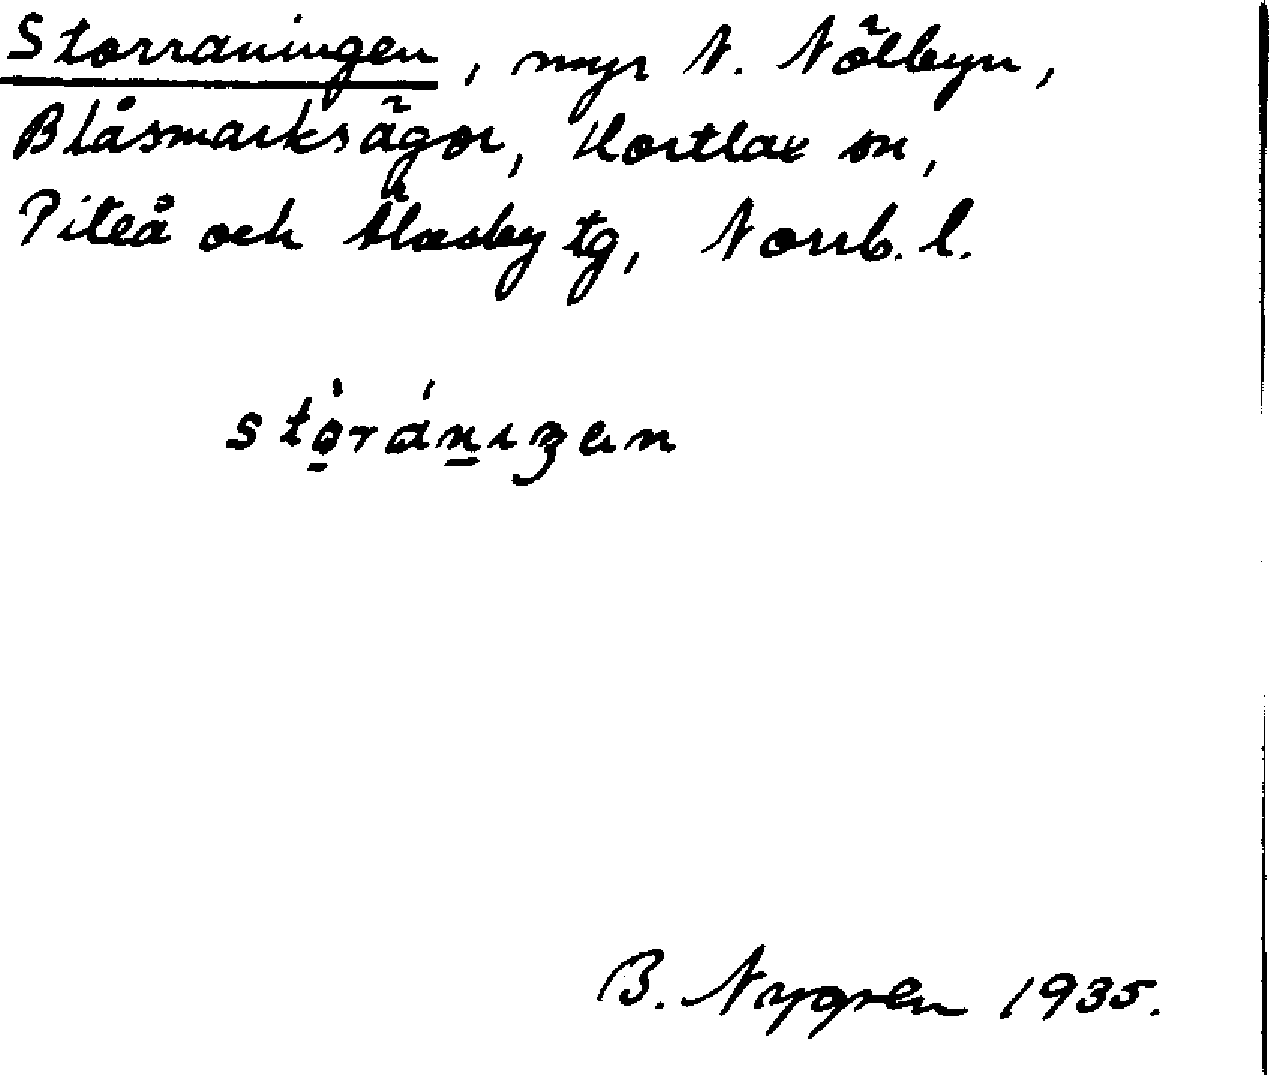 Storraningen, myr N. Nölbyn,
Blåsmarksägor, Hortlax sn,
Piteå och Älvsby tg, Norrb. l.
B. Nygren 1935.